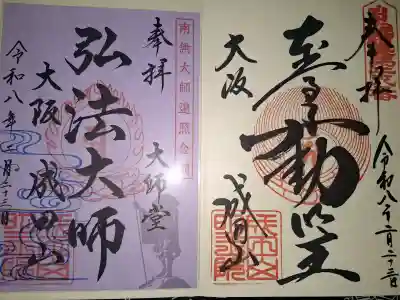 奉拝
大師堂
弘法大師
令和八年二月二十三日
大阪
成田山
南無大師遍照金剛
奉拝
令和八年二月二十三日
大阪
成田山